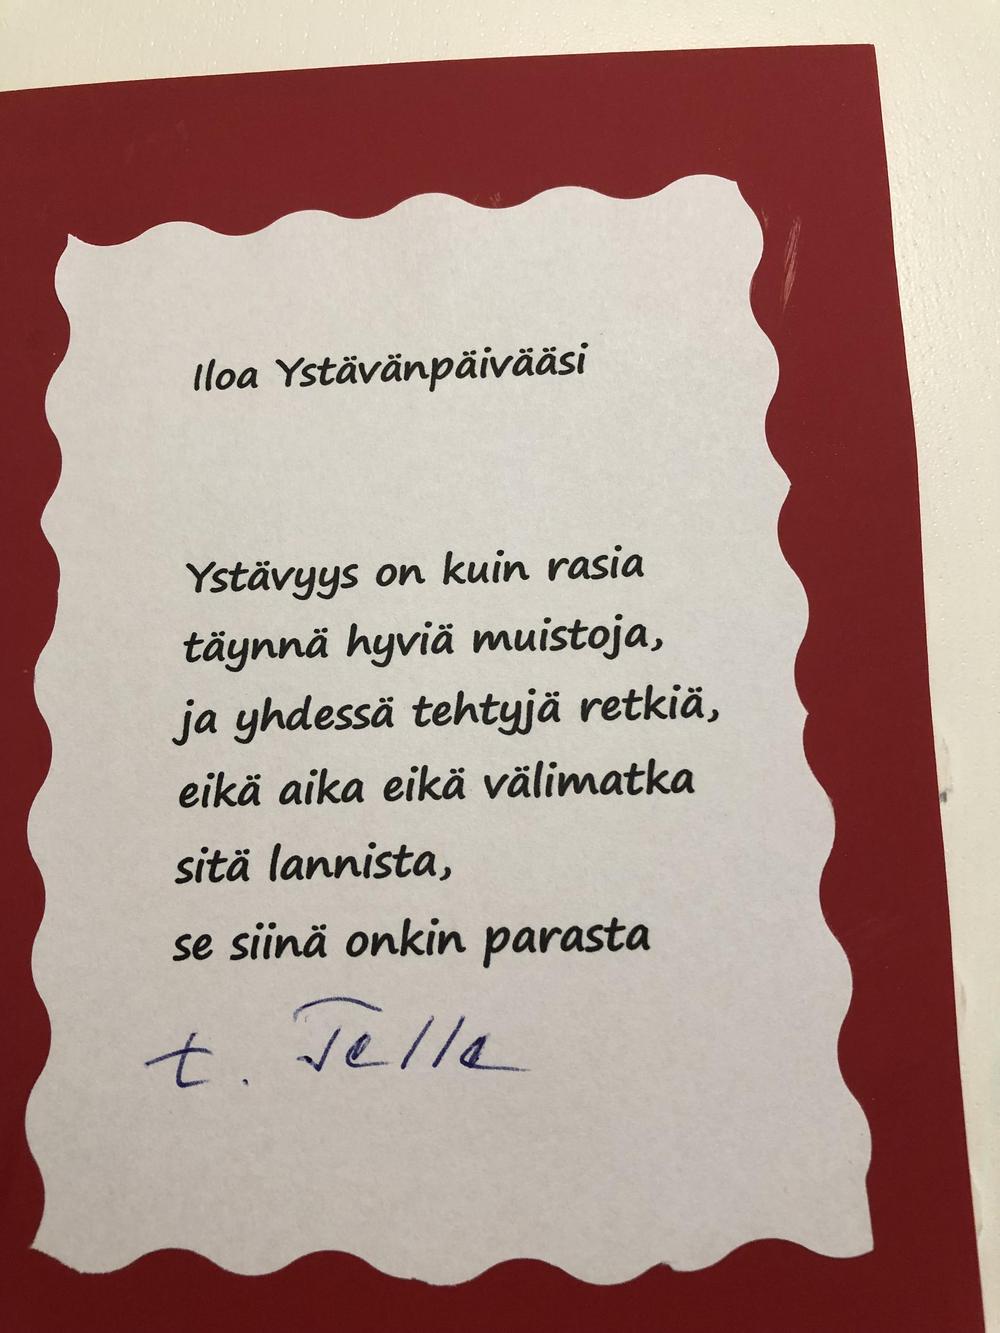 Iloa Ystävänpäivääsi
Ystävyys on kuin rasia
täynnä hyviä muistoja,
ja yhdessä tehtyjä retkiä,
eikä aika eikä välimatka
sitä lannista,
se siinä onkin parasta
t. Telle